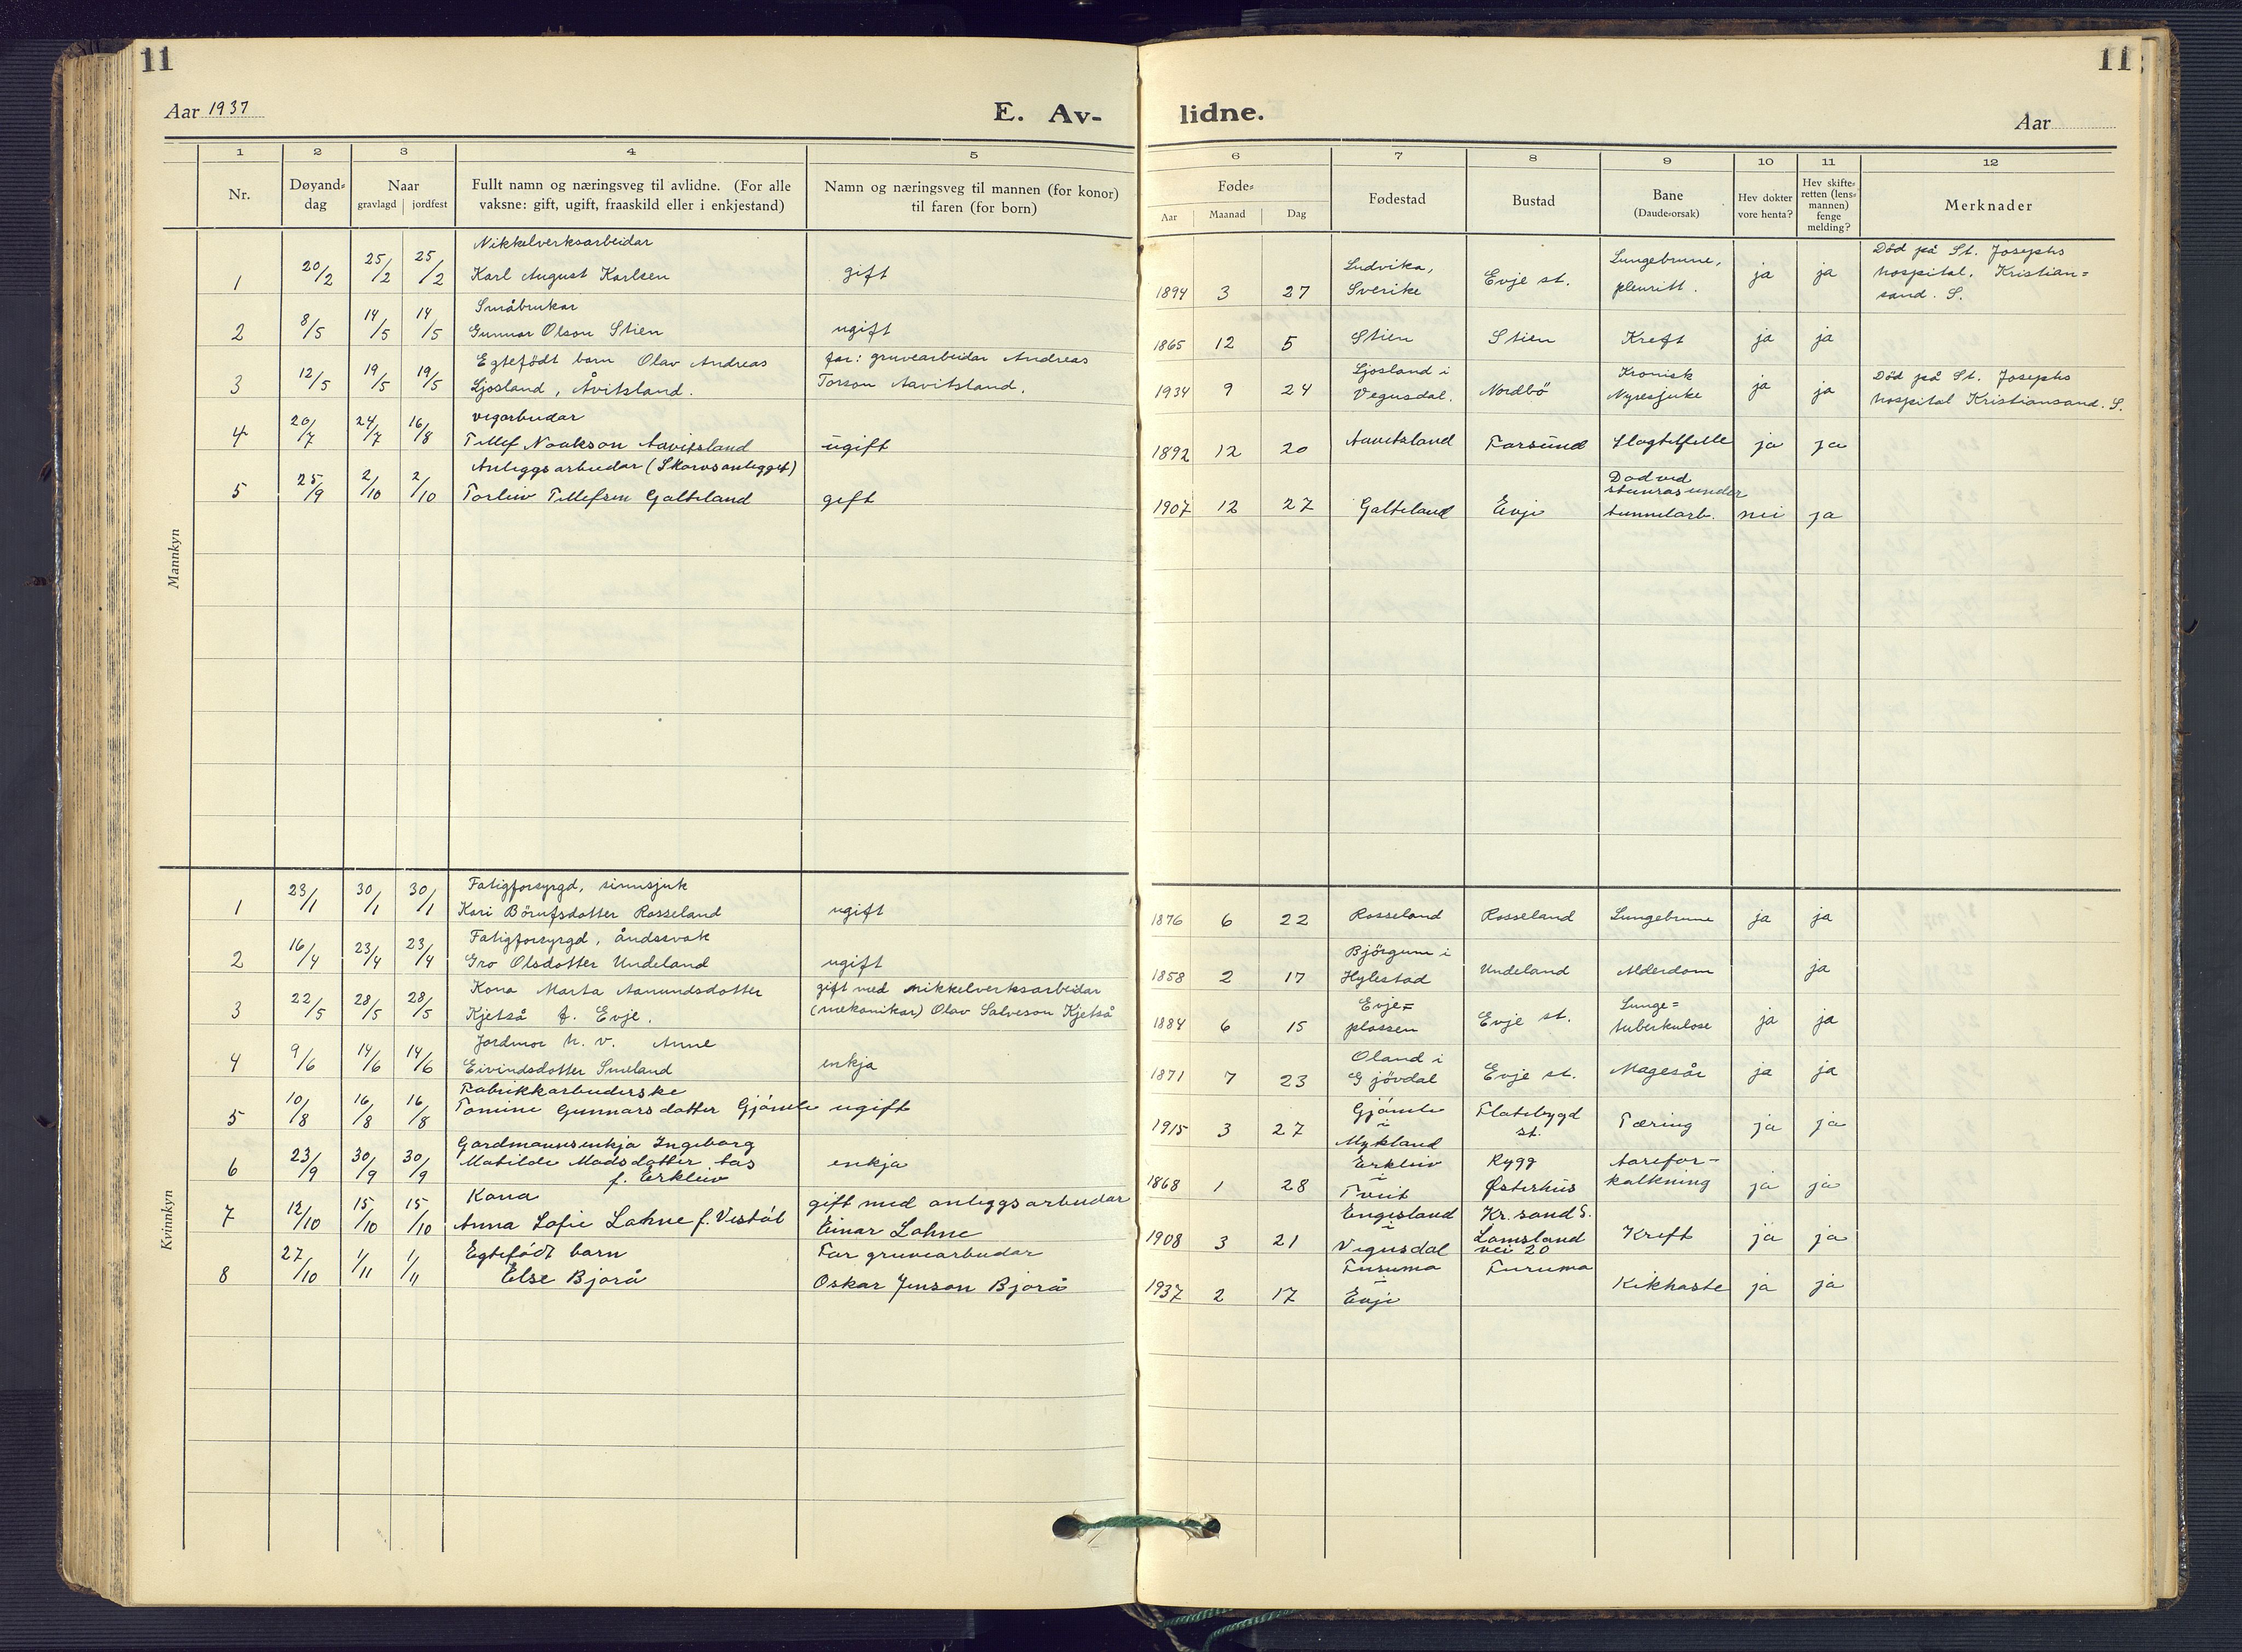 11
11
Aar 1937
E. Av-
lidne.
Aar
1
2
3
4
5
6
7
8
9
10
11
12
Nr.
Døyand-
dag
Naar
gravlagd | jordfest
Fullt namn og næringsveg til avlidne. (For alle
vaksne: gift, ugift, fraaskild eller i enkjestand)
Namn og næringsveg til mannen (for konor)
til faren (for born)
Føde-
Aar Maanad Dag
Fødestad
Bustad
Bane
(Daude-orsak)
Hev dokter
vore henta?
Hev skifte-
retten (lens-
mannen)
fenge
melding?
Merknader
Mannkyn
Nikkelverksarbeidar
1 20/2 25/2 25/2 Karl August Karlsen gift 1894 3 27 Ludvika, Sverike Evje st. Lungebrune, pleuritt. ja ja Död på St. Josephs
hospital, Kristian=
sand. S.
Småbrukar
2 8/5 14/5 14/5 Gunnar Olson Stien ugift 1865 12 5 Stien Stien Kreft ja ja
Egtefödt barn Olav Andreas far: gruvearbeidar Andreas Ljosland i Kronisk Död på St. Josephs
3 12/5 19/5 19/5 Ljosland, Åvitsland. Torson Aavitsland. 1934 9 24 Vegusdal. Nordbö Nyresjuke ja ja hospital Kristiansand. S.
vegarbeidar
4 20/7 24/7 16/8 Tellef Noakson Aavitsland ugift 1892 12 20 Aavitsland Farsund Slagtilfelle ja ja
Anleggsarbeidar (Skarvsanlegget) Död ved
steinras under
5 25/9 2/10 2/10 Torleiv Tellefsen Galteland gift 1907 12 27 Galteland Evje tunnelarb. nei ja
Kvinnkyn
Fatigforsyrgd, sinnsjuk
1 23/1 30/1 30/1 Kari Börufsdotter Rosseland ugift 1876 6 22 Rosseland Rosseland Lungebrune ja ja
Fatigforsyrgd, åndssvak Björgum i
2 16/4 23/4 23/4 Gro Olsdotter Undeland ugift 1858 2 17 Hylestad Undeland Alderdom ja
Kona Marta Aanundsdotter gift med nikkelverksarbeidar Evje= Lunge=
3 22/5 28/5 28/5 Kjetså f. Evje. (mekanikar) Olav Salveson Kjetså 1884 6 15 plassen Evje st. tuberkulose ja ja
Jordmor n. v. Anne Oland i
4 9/6 14/6 14/6 Eivindsdotter Smeland enkja 1871 7 23 Gjövdal Evje st. Magesår ja ja
Fabrikkarbeiderske Gjámle Flatebygd
5 10/8 16/8 16/8 Tomine Gunnarsdotter Gjámle ugift 1915 3 27 i Mykland st. Tæring ja ja
Gardmannsenkja Ingeborg Erkleiv Rygg Aarefor-
6 23/9 30/9 30/9 Matilde Madsdatter tas enkja 1868 1 28 i Tveit Østerhus kalkning ja ja
f. Erkleiv
Kona gift med anleggsarbeidar Engesland Kr.sand S.
7 12/10 15/10 15/10 Anna Sofie Lohne f. Vestøl Einar Lohne 1908 3 21 i Vegusdal Lomsland vei 20 Kreft ja ja
Egtefödt barn Far gruvearbeidar Furumo Furumo
8 27/10 1/11 1/11 Else Bjorå Oskar Jenson Bjorå 1937 2 17 i Evje Kikhoste ja ja